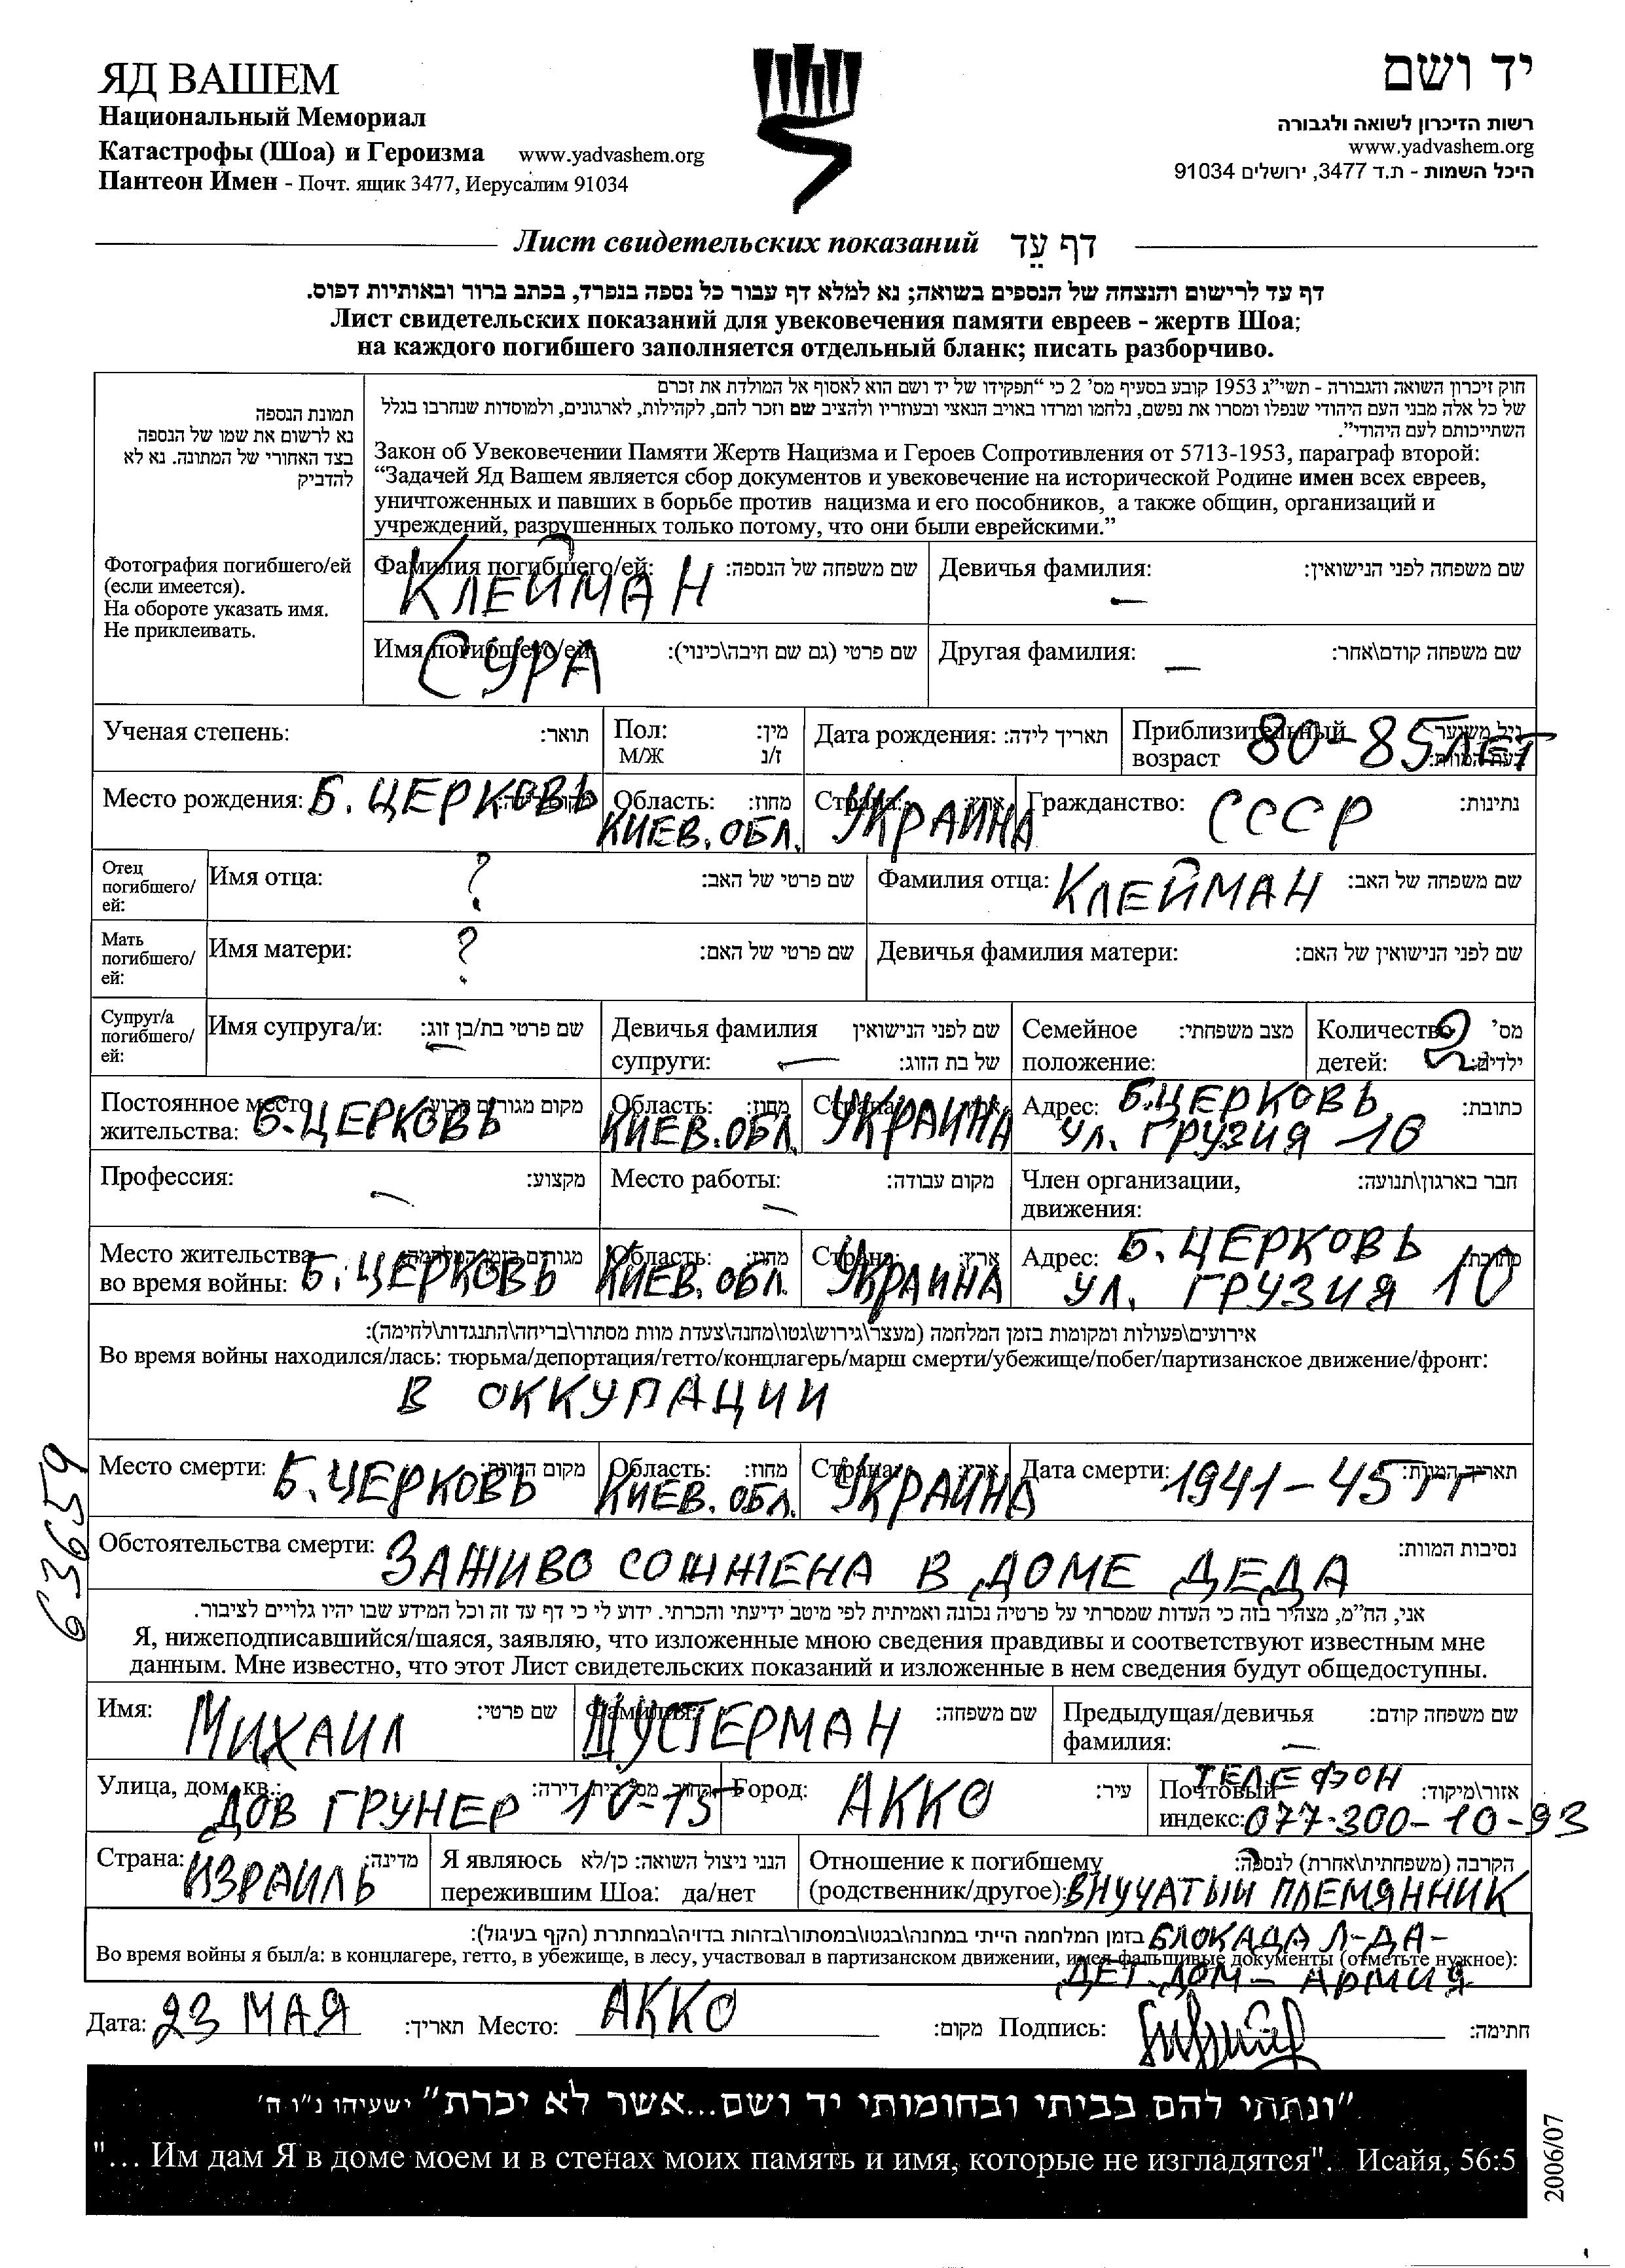 ЯД ВАШЕМ
Национальный Мемориал
Катастрофы (Шоа) и Героизма www.yadvashem.org
Пантеон Имен - Почт. ящик 3477, Иерусалим 91034
יד ושם
רשות הזיכרון לשואה ולגבורה
www.yadvashem.org
היכל השמות - ת.ד 3477, ירושלים 91034
Лист свидетельских показаний דף עֵד
דף עד לרישום והנצחה של הנספים בשואה; נא למלא דף עבור כל נספה בנפרד, בכתב ברור ובאותיות דפוס.
Лист свидетельских показаний для увековечения памяти евреев - жертв Шоа;
на каждого погибшего заполняется отдельный бланк; писать разборчиво.
תמונת הנספה
נא לרשום את שמו של הנספה
בצד האחורי של המתונה. נא לא
להדביק
Фотография погибшего/ей
(если имеется).
На обороте указать имя.
Не приклеивать.
חוק זיכרון השואה והגבורה - תשי"ג 1953 קובע בסעיף מס' 2 כי "תפקידו של יד ושם הוא לאסוף אל המולדת את זכרם
של כל אלה מבני העם היהודי שנפלו ומסרו את נפשם, נלחמו ומרדו באויב הנאצי ובעוזריו ולהציב שם וזכר להם, לקהילות, לארגונים, ולמוסדות שנחרבו בגלל
השתייכותם לעם היהודי".
Закон об Увековечении Памяти Жертв Нацизма и Героев Сопротивления от 5713-1953, параграф второй:
"Задачей Яд Вашем является сбор документов и увековечение на исторической Родине имен всех евреев,
уничтоженных и павших в борьбе против нацизма и его пособников, а также общин, организаций и
учреждений, разрушенных только потому, что они были еврейскими."
Фамилия погибшего/ей: КЛЕЙМАН שם משפחה של הנספה: Девичья фамилия: — שם משפחה לפני הנישואין:
Имя погибшего/ей: СУРА שם פרטי (גם שם חיבה\כינוי): Другая фамилия: — שם משפחה קודם\אחר:
Ученая степень: תואר: Пол: מין: М/Ж ז/נ Дата рождения: תאריך לידה: Приблизительный возраст 80-85 ЛЕТ
Место рождения: Б. ЦЕРКОВЬ Область: מחוז: КИЕВ. ОБЛ. Страна: ארץ: УКРАИНА Гражданство: СССР נתינות:
Отец погибшего/ей: Имя отца: ? שם פרטי של האב: Фамилия отца: КЛЕЙМАН שם משפחה של האב:
Мать погибшего/ей: Имя матери: ? שם פרטי של האם: Девичья фамилия матери: שם לפני הנישואין של האם:
Супруг/а погибшего/ей: Имя супруга/и: — שם פרטי בת/בן זוג: Девичья фамилия супруги: — שם לפני הנישואין של בת הזוג: Семейное положение: מצב משפחתי: Количество детей: 2 מס' ילדים:
Постоянное место жительства: Б. ЦЕРКОВЬ מקום מגורים קבוע: Область: מחוז: КИЕВ. ОБЛ. Страна: ארץ: УКРАИНА Адрес: Б. ЦЕРКОВЬ, УЛ. ГРУЗИЯ -10 כתובת:
Профессия: — מקצוע: Место работы: — מקום עבודה: Член организации, движения: חבר בארגון\תנועה:
Место жительства во время войны: Б. ЦЕРКОВЬ מגורים בזמן המלחמה: Область: מחוז: КИЕВ. ОБЛ. Страна: ארץ: УКРАИНА Адрес: Б. ЦЕРКОВЬ УЛ. ГРУЗИЯ 10 כתובת:
אירועים\פעולות ומקומות בזמן המלחמה (מעצר\גירוש\גטו\מחנה\צעדת מוות מסתור\בריחה\התנגדות\לחימה):
Во время войны находился/лась: тюрьма/депортация/гетто/концлагерь/марш смерти/убежище/побег/партизанское движение/фронт:
В ОККУПАЦИИ
Место смерти: Б. ЦЕРКОВЬ מקום המוות: Область: מחוז: КИЕВ. ОБЛ. Страна: ארץ: УКРАИНА Дата смерти: 1941-45 гг תאריך המוות:
Обстоятельства смерти: ЗАЖИВО СОЖЖЕНА В ДОМЕ ДЕДА נסיבות המוות:
63659
אני, הח"מ, מצהיר בזה כי העדות שמסרתי על פרטיה נכונה ואמיתית לפי מיטב ידיעתי והכרתי. ידוע לי כי דף עד זה וכל המידע שבו יהיו גלויים לציבור.
Я, нижеподписавшийся/шаяся, заявляю, что изложенные мною сведения правдивы и соответствуют известным мне
данным. Мне известно, что этот Лист свидетельских показаний и изложенные в нем сведения будут общедоступны.
Имя: МИХАИЛ שם פרטי: Фамилия: ШУСТЕРМАН שם משפחה: Предыдущая/девичья фамилия: — שם משפחה קודם:
Улица, дом, кв.: ДОВ ГРУНЕР 10-15 Город: АККО עיר: Почтовый индекс: ТЕЛЕФОН 077-300-10-93 אזור\מיקוד:
Страна: ИЗРАИЛЬ מדינה: Я являюсь пережившим Шоа: да/нет הנני ניצול השואה: כן/לא Отношение к погибшему (родственник/другое): ВНУЧАТЫЙ ПЛЕМЯННИК הקרבה (משפחתית\אחרת) לנספה:
בזמן המלחמה הייתי במחנה\בגטו\במסתור\בזהות בדויה\במחתרת (הקף בעיגול): БЛОКАДА Л-ДА-
Во время войны я был/а: в концлагере, гетто, в убежище, в лесу, участвовал в партизанском движении, имел фальшивые документы (отметьте нужное):
ДЕТ. ДОМ - АРМИЯ
Дата: 23 МАЯ תאריך: Место: АККО מקום: Подпись: חתימה:
"ונתתי להם בביתי ובחומותי יד ושם...אשר לא יכרת" ישעיהו נ"ו ה'
"... Им дам Я в доме моем и в стенах моих память и имя, которые не изгладятся". Исайя, 56:5
2006/07